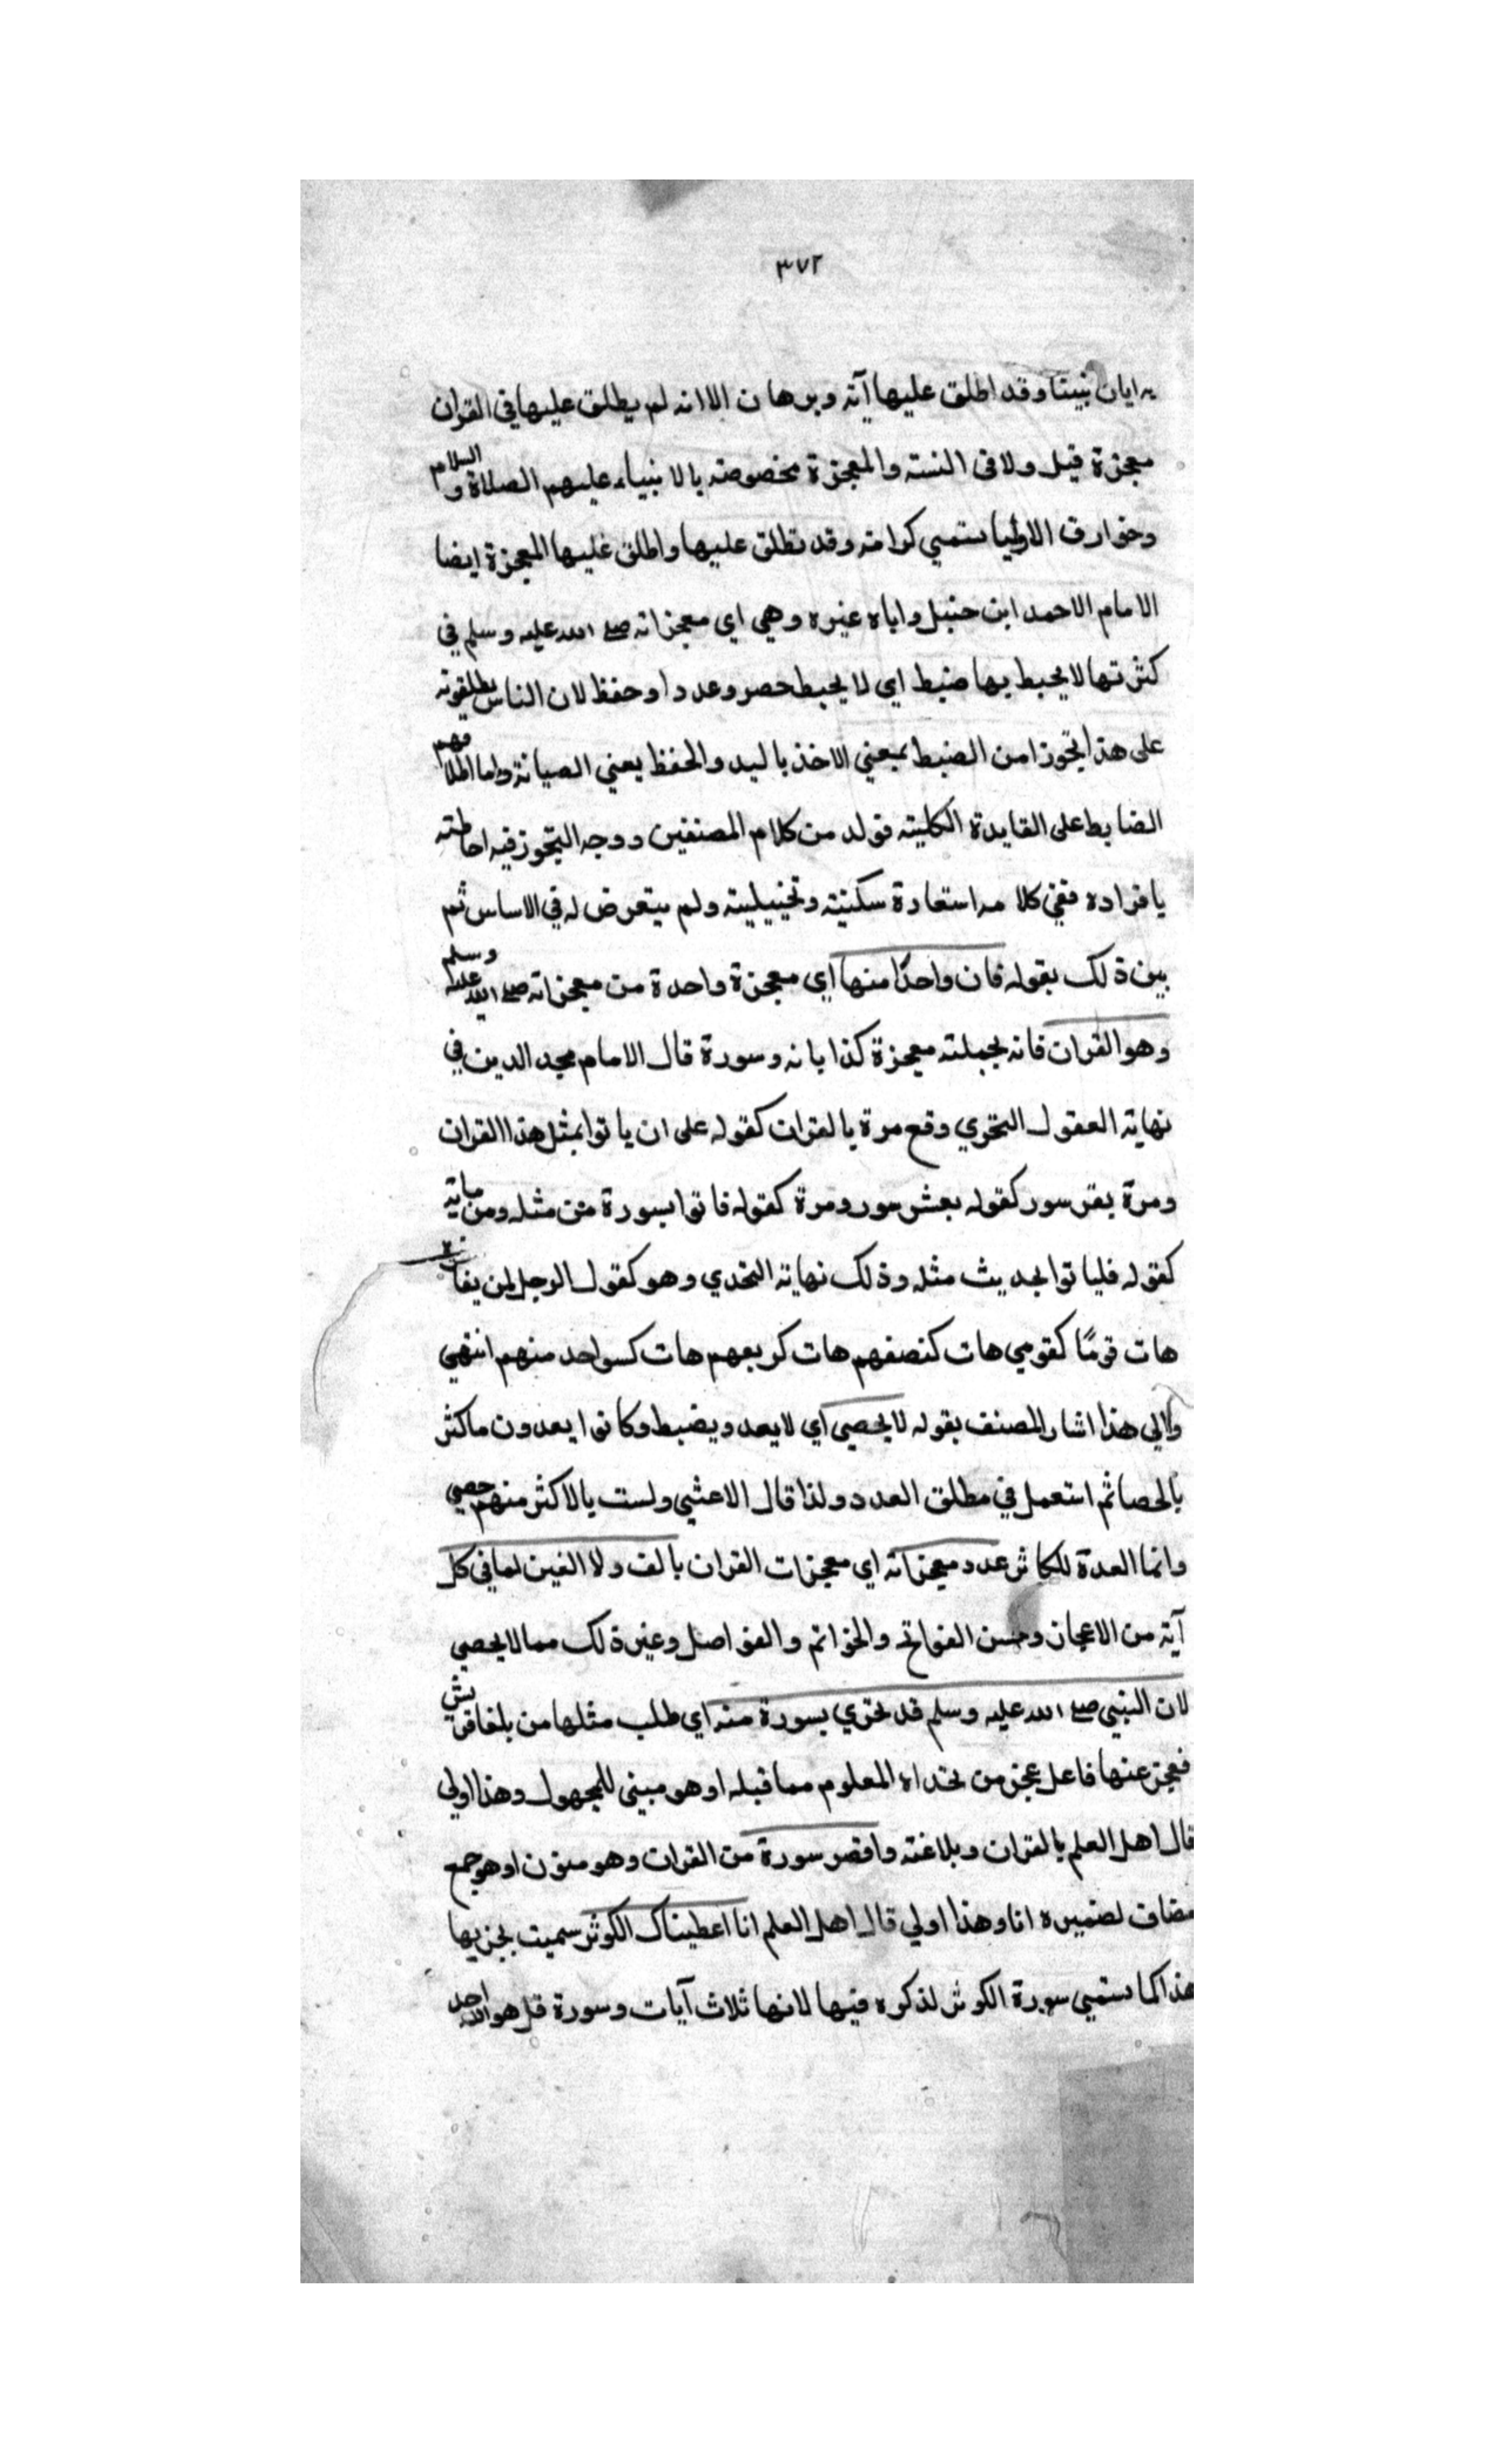 ٣٧٢
يه ايات نبينا وقد اطلق عليها آية وبرهان الا انه لم يطلق عليها في القران
معجزة قيل ولا في السنة والمعجزة مخصوصة بالانبياء عليهم الصلاة والسلام
وخوارق الاوليا تسمي كرامة وقد تطلق عليها واطلق عليها المعجزة ايضا
الامام الاحمد ابن حنبل واباه غيره وهي اي معجزاته صلى الله عليه وسلم في
كثرتها لا يحيط بها ضبط اي لا يحيط حصر وعددا وحفظ لان الناس يطلقونه
على هذا تجوزا من الضبط بمعني الاخذ باليد والحفظ يعني الصيانة واما اطلاقهم
الضابط على القايدة الكلية فولد من كلام المصنفين ووجه التجوز فيه احاطته
يافراده ففي كلامه استعارة سكنية وتخييلية ولم يتعرض له في الاساس ثم
بين ذلك بقوله فان واحدًا منها اي معجزة واحدة من معجزاته صلى الله عليه وسلم
وهو القران فانه بجملته معجزة كذا بانه وسورة قال الامام مجد الدين في
نهاية العقول التحري وقع مرة بالقران كقوله على ان ياتوا بمثل هذا القران
ومرة بقر سور كقوله بعشر سور ومرة كقوله فاتوا بسورة من مثله ومن ماية
كقوله فلياتوا بحديث مثله وذلك نهاية التحدي وهو كقول الرجل لمن يفا
هات قومًا كقومي هات كنصفهم هات كربعهم هات كسواحد منهم انتهي
والي هذا اشار المصنف بقوله لا يحصي اي لا يعد ويضبط وكانوا يعدون ما كثر
بالحصا ثم استعمل في مطلق العدد ولذا قال الاعشي ولست بالاكثر منهم حصي
وانما العدة للكاثر عدد معجزاته اي معجزات القران بالف ولا الفين لما في كل
آية من الاعجاز وحسن الفواتح والخواتم والفواصل وغير ذلك مما لا يحصي
لان النبي صلى الله عليه وسلم قد تحري بسورة منه اي طلب مثلها من بلغا قريش
فعجز عنها فاعل عجز من تحداه المعلوم مما قبله او هو مبني للمجهول وهذا اولي
قال اهل العلم بالقران وبلاغته واقصر سورة من القران وهو منون او هو جمع
مضاف لضميره انا وهذا اولي قال اهل العلم انا اعطيناك الكوثر سميت بجزيها
هذا كما تسمي سورة الكوثر لذكره فيها لانها ثلاث آيات وسورة قل هو الله احد